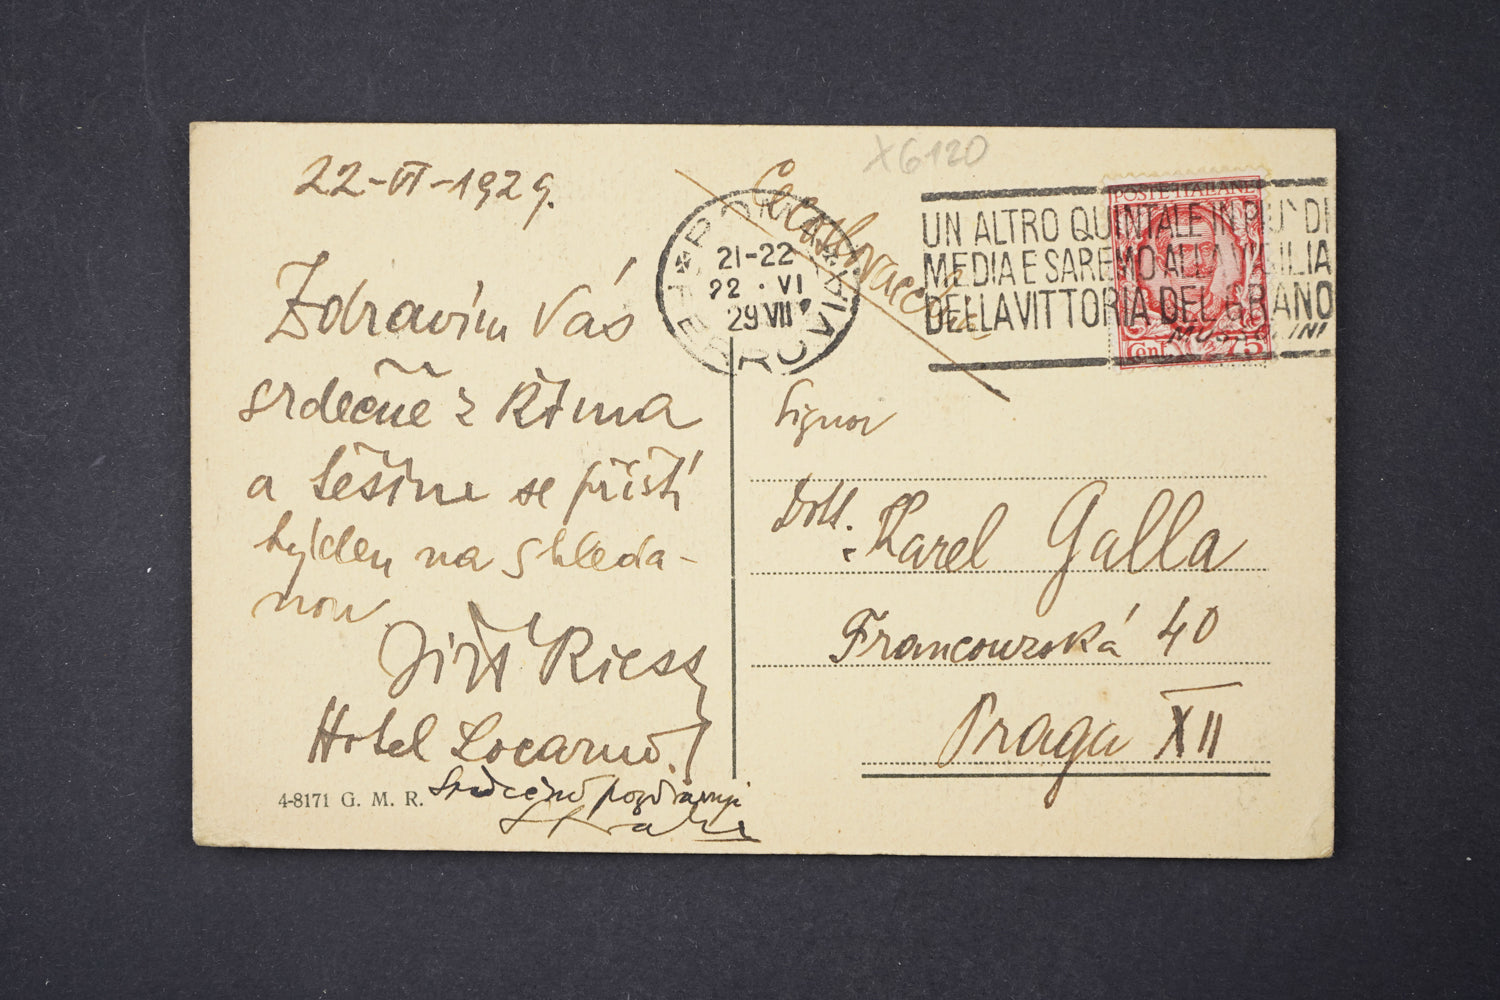 22-VI-1929.
Zdravím Vás
srdečně z Říma
a těšíme se příští
týden na shleda-
nou.
Jiří Riess
Hotel Locarno.
Srdečně pozdravuje
4-8171 G. M. R.
X6120
Cecoslovacchia
ROMA FERROVIA
21-22
22 · VI
29 VII
UN ALTRO QUINTALE IN PIU' DI
MEDIA E SAREMO ALLA VIGILIA
DELLA VITTORIA DEL GRANO
MUSSOLINI
POSTE ITALIANE
Cent. 75
Signor
Dott. Karel Galla
Francouzská 40
Praga XII